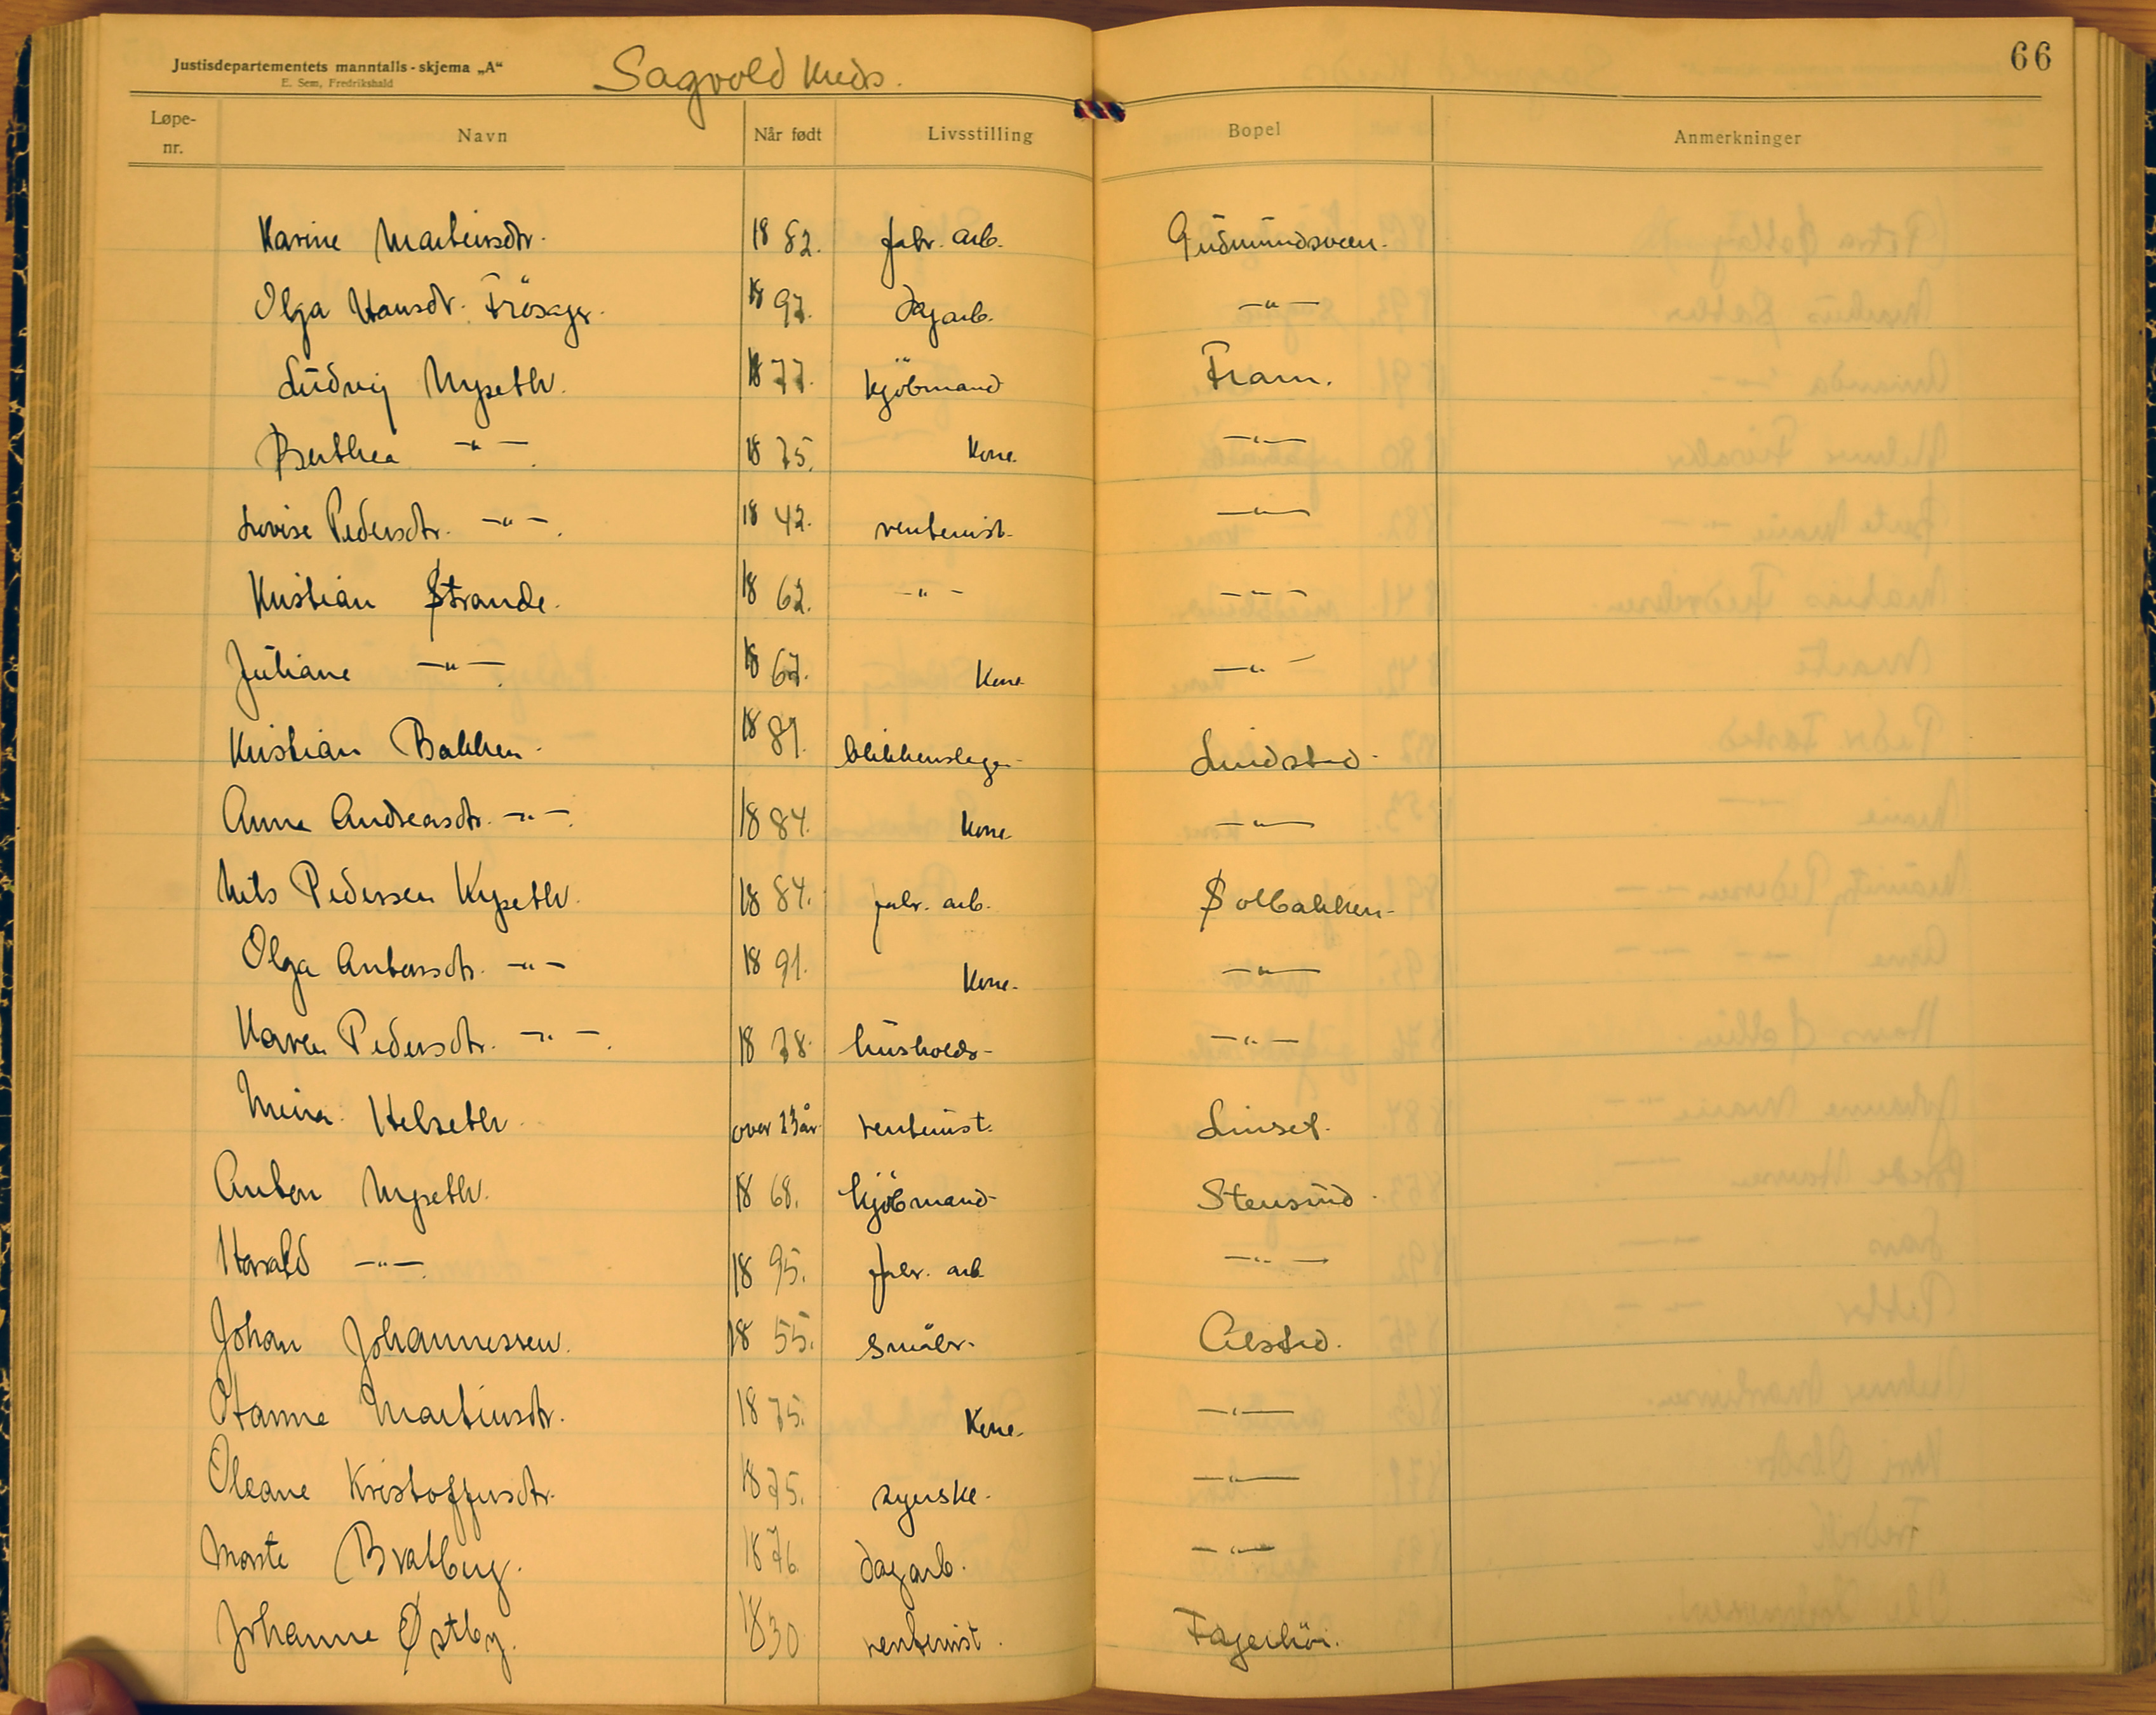 Justisdepartementets manntalls-skjema „A“
E. Sem, Fredrikshald
Sagvold Kreds.
66
Løpe-nr. Navn Når født Livsstilling Bopel Anmerkninger
Karine Martinsdtr. 1882. fabr. arb. Gudmundsveen.
Olga Hansdtr. Frösager. 1897. Dagarb. —"—
Ludvig Nyseth. 1877. kjöbmand Fram.
Berthea —"—. 1875. Kone. —"—
Lovise Pedersdtr. —"—. 1842. rentenist. —"—
Kristian Strande. 1862. —"— —"—
Juliane —"—. 1867. Kone —"—
Kristian Bakken. 1881. blikkenslager Lundstad.
Anne Andreasdtr. —"—. 1884. Kone. —"—
Nils Pedersen Nyseth. 1884. fabr. arb. Solbakken.
Olga Antonsdtr. —"— 1891. Kone. —"—
Karen Pedersdtr. —"—. 1878. husholds- —"—
Helseth over 23 år rentenist.
Anton Nyseth. 1868. kjöbmand Stensrud.
Harald —"—. 1895. fabr. arb —"—
Johan Johannessen. 1855. småbr. Alstad.
Hanna Martinsdtr. 1875. Kone. —"—
Oleane Kristoffersdtr. 1875. syerske. —"—
Marte Bratberg. 1876. dagarb. —"—
Johanne Østby. 1830 rentenist.